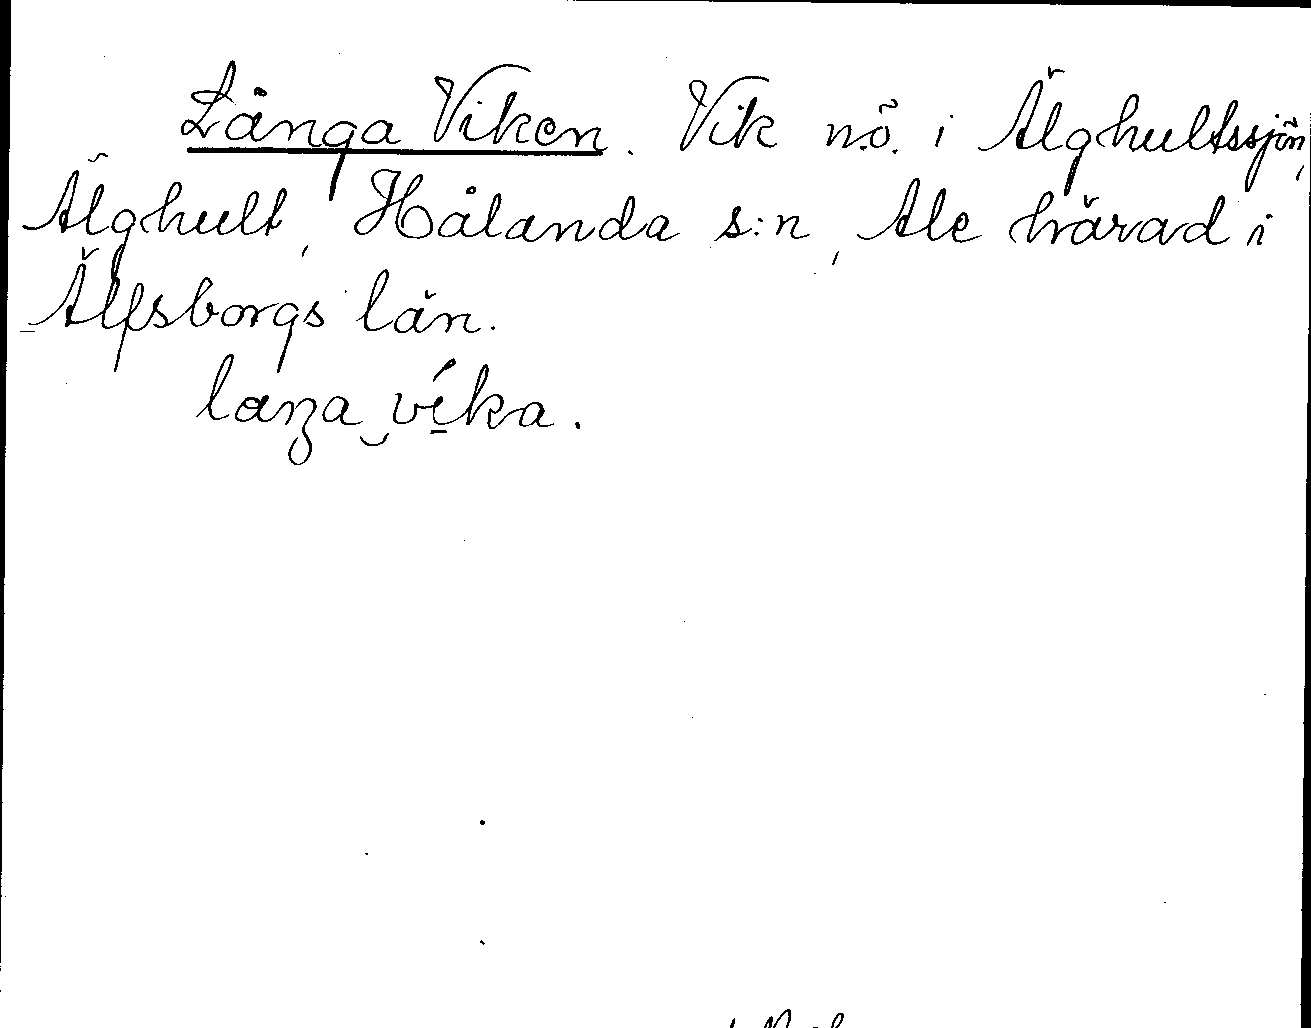 Långa Viken. Vik n.ö. i Älghultssjön,
Älghult, Hålanda s:n, Ale härad i
Älfsborgs län.
laŋa‿víka.